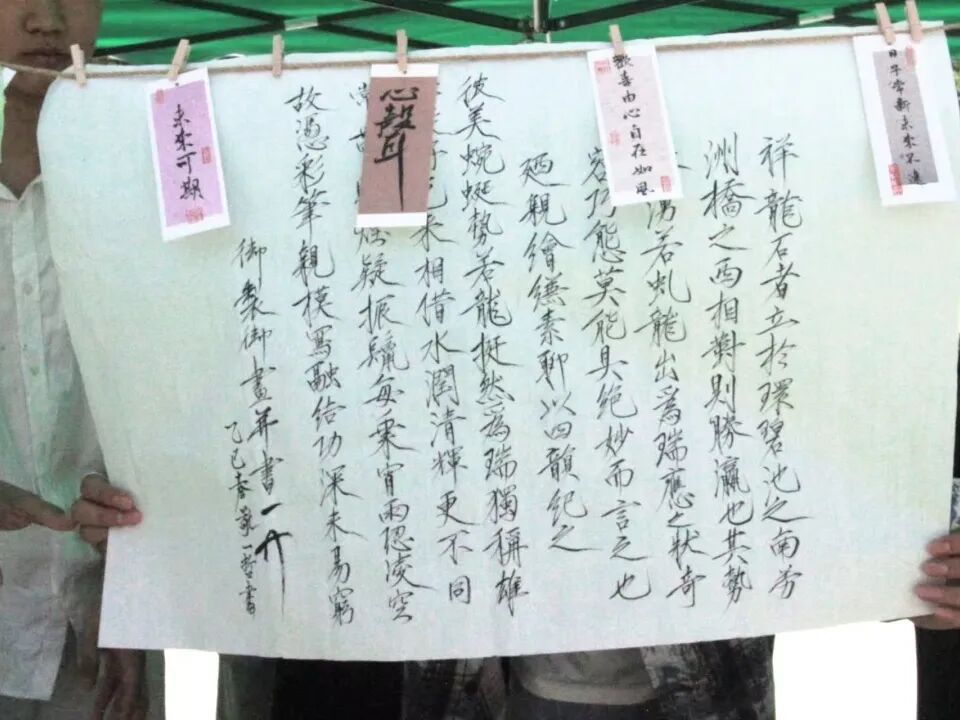 日子常新未來不遠
歡喜由心自在如風
心聲
未來可期
祥龍石者立於環碧池之南芳
洲橋之西相對則勝瀛也其勢
湧若虬龍出爲瑞應之狀奇
容巧態莫能具絕妙而言之也
廼親繪縑素聊以四韻紀之
彼美蜿蜒勢若龍挺然爲瑞獨稱雄
來相借水潤清輝更不同
疑振鬣每乘宵雨恐凌空
故憑彩筆親模寫融結功深未易窮
御製御畫并書
乙巳春一哲書